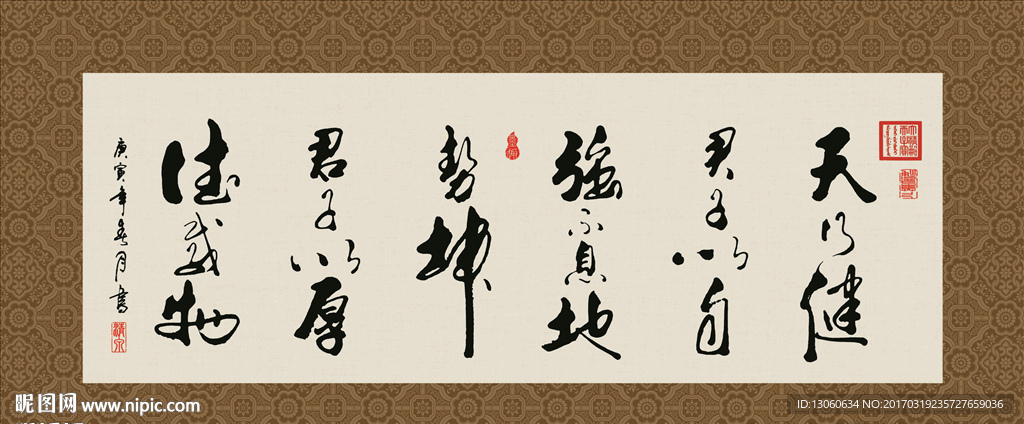 天行健
君子以自
強不息地
勢坤
君子以厚
德載物
庚寅年春月書
昵图网 www.nipic.com
ID:13060634 NO:20170319235727659036